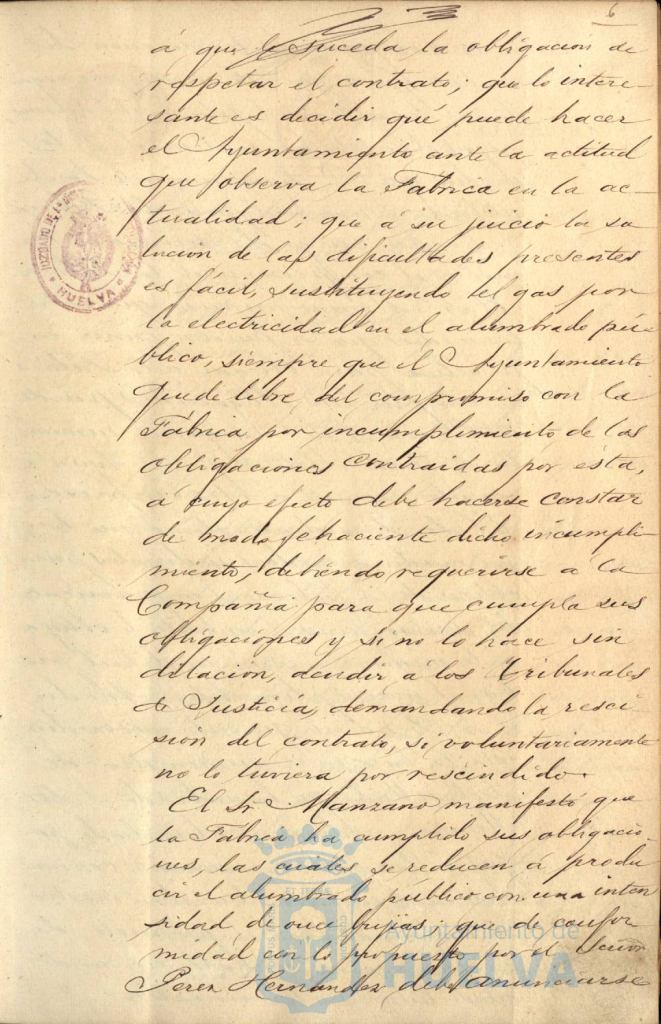 6
á que le suceda la obligación de
respetar el contrato; que lo intere-
sante es decidir qué puede hacer
el Ayuntamiento ante la actitud
que observa la Fabrica en la ac-
tualidad; que á su juicio la so-
lución de las dificultades presentes
es fácil, sustituyendo el gas por
la electricidad en el alumbrado pú-
blico, siempre que el Ayuntamiento
quede libre del compromiso con la
Fábrica por incumplimiento de las
obligaciones contraidas por esta,
á cuyo efecto debe hacerse constar
de modo fehaciente dicho incumpli-
miento, debiendo requerirse á la
Compañia para que cumpla sus
obligaciones y si no lo hace sin
dilación, acudir á los Tribunales
de Justicia, demandando la resci-
sión del contrato, si voluntariamente
no lo tuviera por rescindido.
El Sr. Manzano manifestó que
la Fabrica ha cumplido sus obligacio-
nes, las cuales se reducen á produ-
cir el alumbrado público con una inten-
sidad de once bujias; que de confor-
midad con lo propuesto por el Señor
Perez Hernandez debe anunciarse
JUZGADO DE
HUELVA
Ayuntamiento de
HUELVA